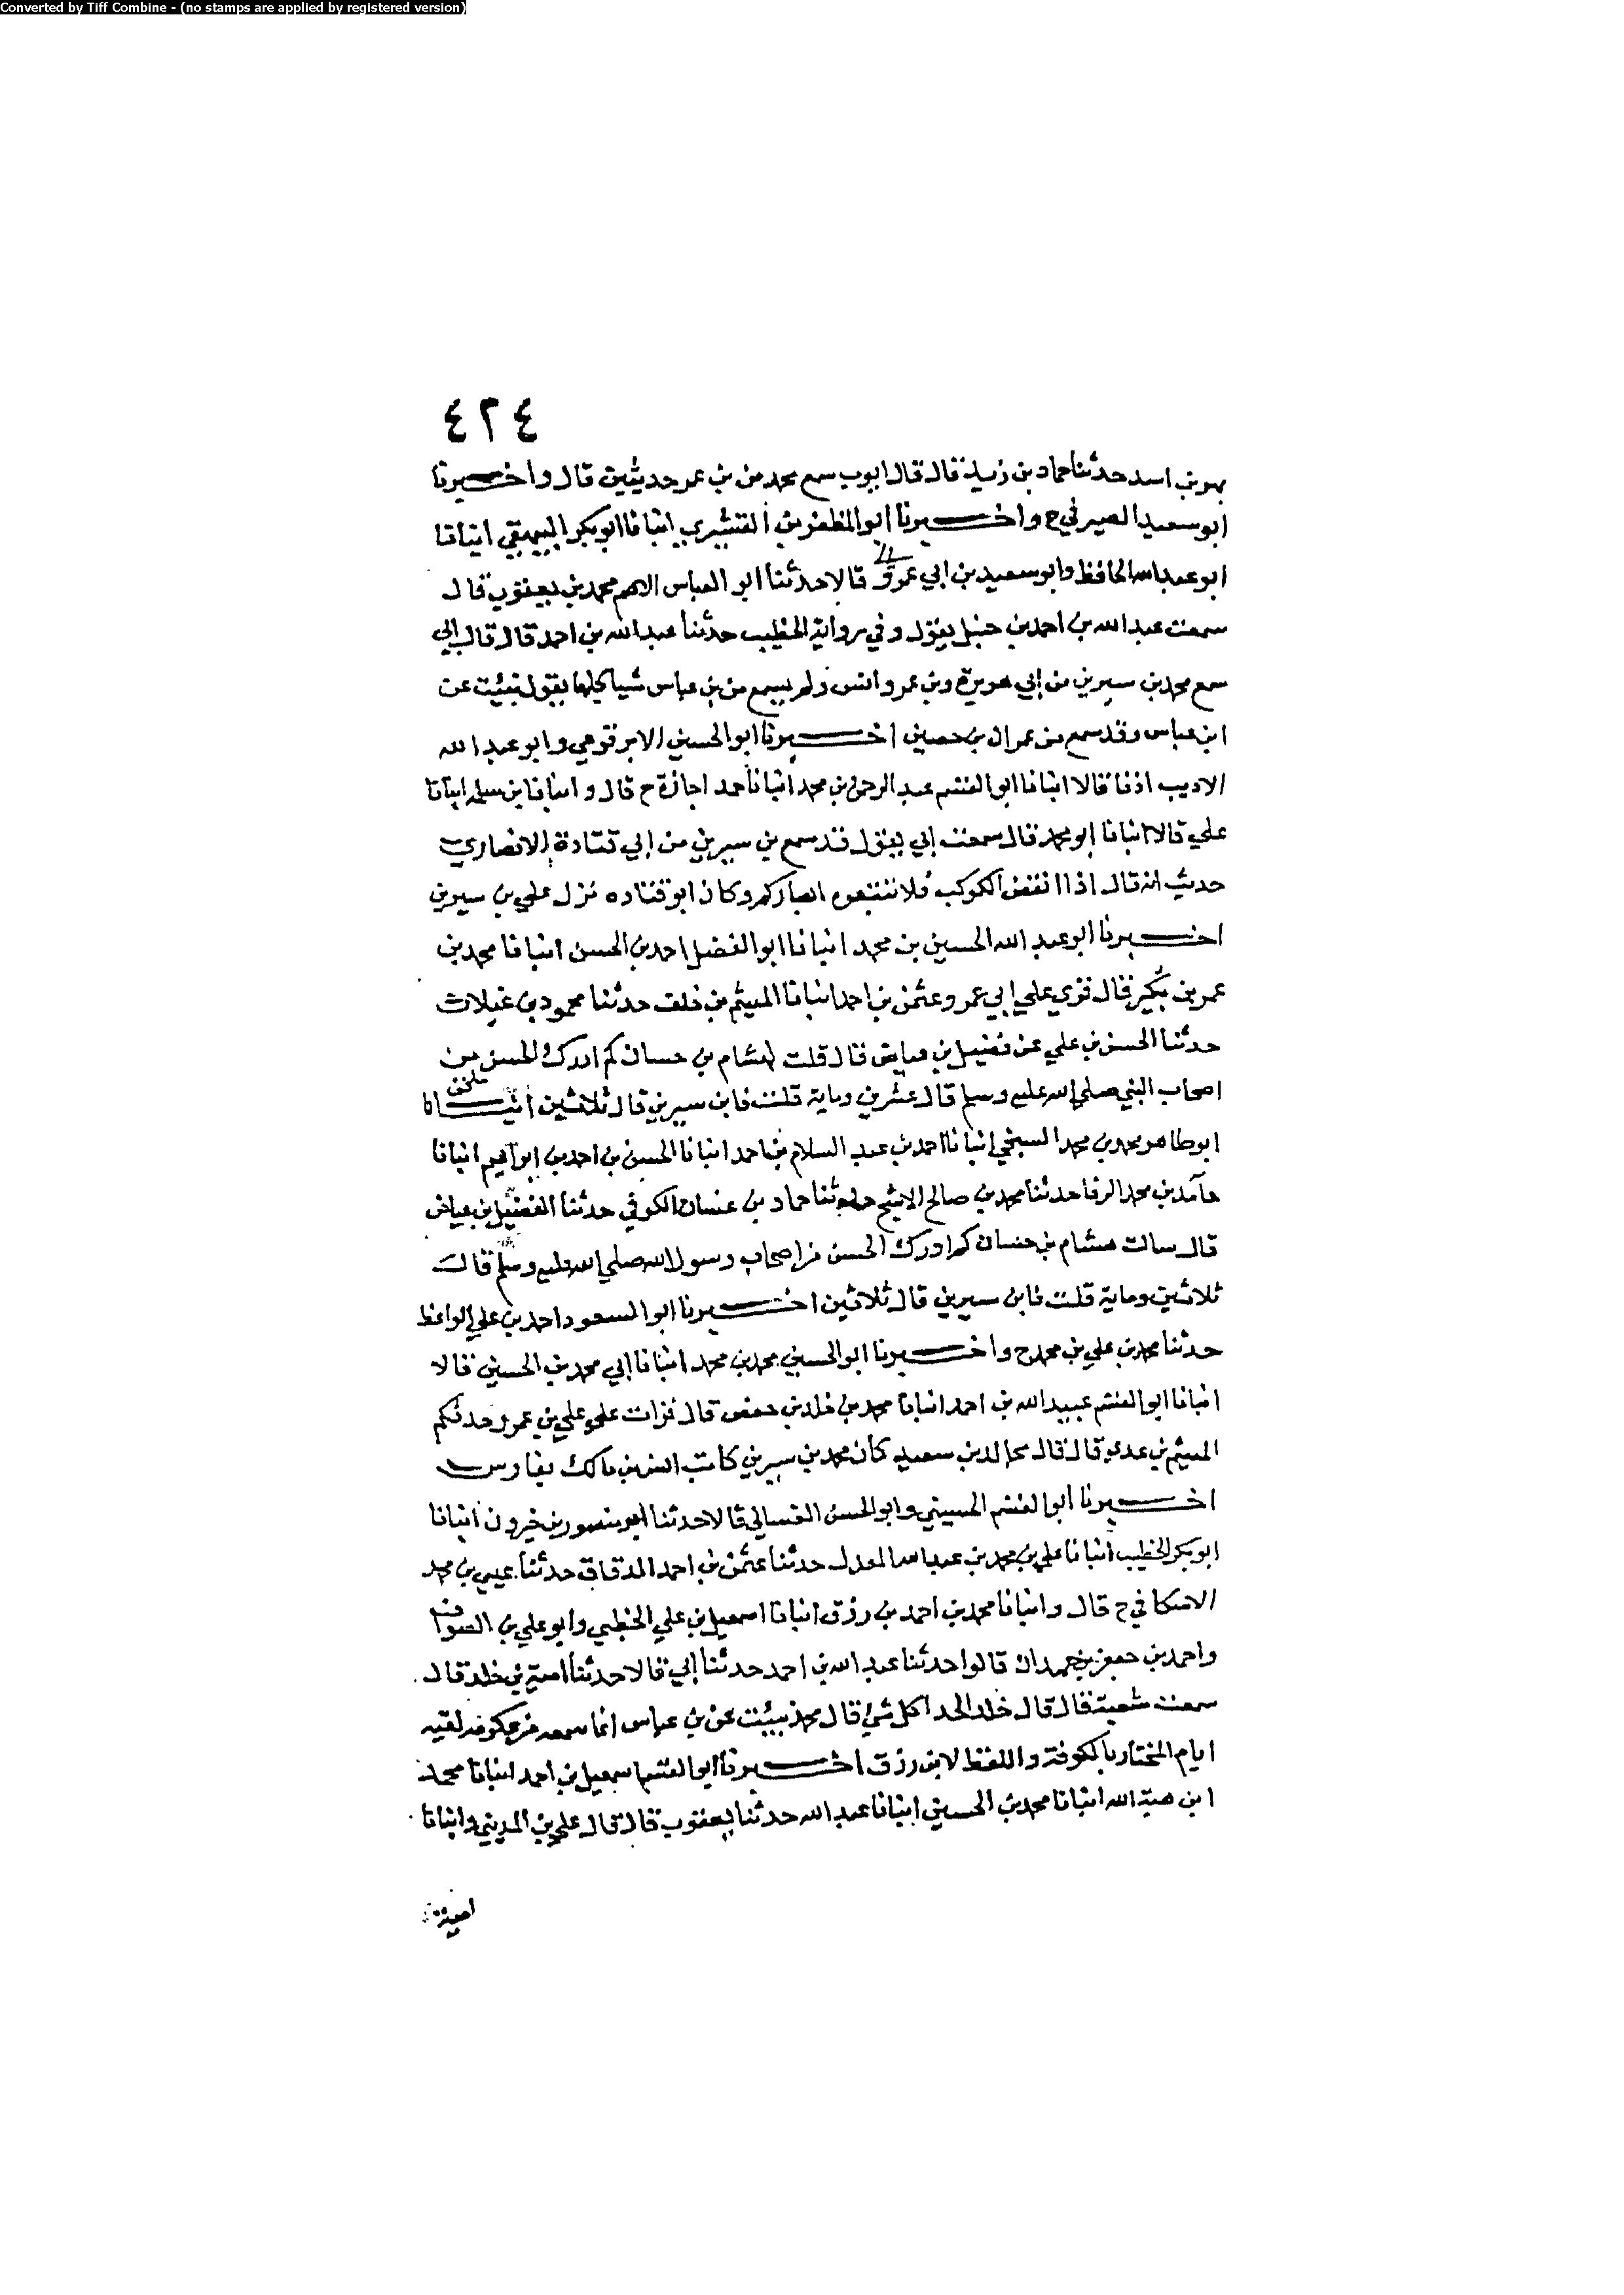 Converted by Tiff Combine - (no stamps are applied by registered version)
٤٢٤
بهز بن اسد حدثنا حماد بن زيد قال قال ايوب سمع محمد من بن عمر حديثين قال واخبرنا
ابو سعيد الصيرفي ح واخبرنا ابو المظفر بن القشيري انبانا ابو بكر البيهقي انبانا
ابو عبد الله الحافظ وابو سعيد بن ابي عمرو قالا حدثنا ابو العباس الاصم محمد بن يعقوب قال
سمعت عبد الله بن احمد بن حنبل يقول وفي رواية الخطيب حدثنا عبد الله بن احمد قال قال ابي
سمع محمد بن سيرين من ابي هريرة وبن عمر وانس ولم يسمع من بن عباس شيا كلها يقول نبئت عن
ابن عباس وقد سمع من عمران بن حصين اخبرنا ابو الحسين الابرقوهي وابو عبد الله
الاديب اذنا قالا انبانا ابو القسم عبد الرحمن بن محمد انبانا حمد اجازة ح قال وانبانا بن سلمه انبانا
علي قالا انبانا ابو محمد قال سمعت ابي يقول قد سمع بن سيرين من ابي قتادة الانصاري
حديث انه قال اذا انقض الكوكب فلا تتبعوه ابصاركم وكان ابو قتاده نزل علي بن سيرين
اخبرنا ابو عبد الله الحسين بن محمد انبانا ابو الفضل احمد بن الحسن انبانا محمد بن
عمر بن بكير قال قري علي ابي عمرو عثمن بن احمد انبانا الهيثم بن خلف حدثنا محمود بن غيلان
حدثنا الحسن بن علي عن فضيل بن عياض قال قلت لهشام بن حسان كم ادرك الحسن من
اصحاب النبي صلي الله عليه وسلم قال عشرين وماية قلت فابن سيرين قال ثلاثين انبانا
ابو طاهر محمد بن محمد السنجي انبانا احمد بن عبد السلام بن احمد انبانا الحسن بن احمد بن ابراهيم انبانا
حامد بن محمد الرفا حدثنا محمد بن صالح الاشج حدثنا حماد بن غسان الكوفي حدثنا الفضيل بن عياض
قال سالت هشام بن حسان كم ادرك الحسن من اصحاب رسول الله صلي الله عليه وسلم قال
ثلاثين وماية قلت فابن سيرين قال ثلاثين اخبرنا ابو السعود احمد بن علي الواعظ
حدثنا محمد بن علي بن محمد ح واخبرنا ابو الحسين محمد بن محمد انبانا ابي محمد بن الحسين قالا
انبانا ابو القسم عبيد الله بن احمد انبانا محمد بن خلد بن حفص قال قرات علي علي بن عمرو حدثكم
الهيثم بن عدي قال قال مجالد بن سعيد كان محمد بن سيرين كاتب انس بن مالك بفارس
اخبرنا ابو القسم الحسيني وابو الحسن الغساني قالا حدثنا ابو منصور بن خيرون انبانا
ابو بكر الخطيب انبانا علي بن محمد بن عبد الله المعدل حدثنا عثمن بن احمد الدقاق حدثنا عيسي بن محمد
الاسكافي ح قال وانبانا محمد بن احمد بن رزق انبانا اسمعيل بن علي الخطبي وابو علي بن الصواف
واحمد بن جعفر بن حمدان قالوا حدثنا عبد الله بن احمد حدثنا ابي قالا حدثنا امية بن خلد قال
سمعت شعبة قال قال خلد الحذا كل شي قال محمد نبيت عن بن عباس انما سمعه من عكرمه لقيه
ايام المختار بالكوفة واللفظ لابن رزق اخبرنا ابو القسم اسمعيل بن احمد انبانا محمد
ابن هبة الله انبانا محمد بن الحسين انبانا عبد الله حدثنا يعقوب قال قال علي بن المديني وانبانا
امية